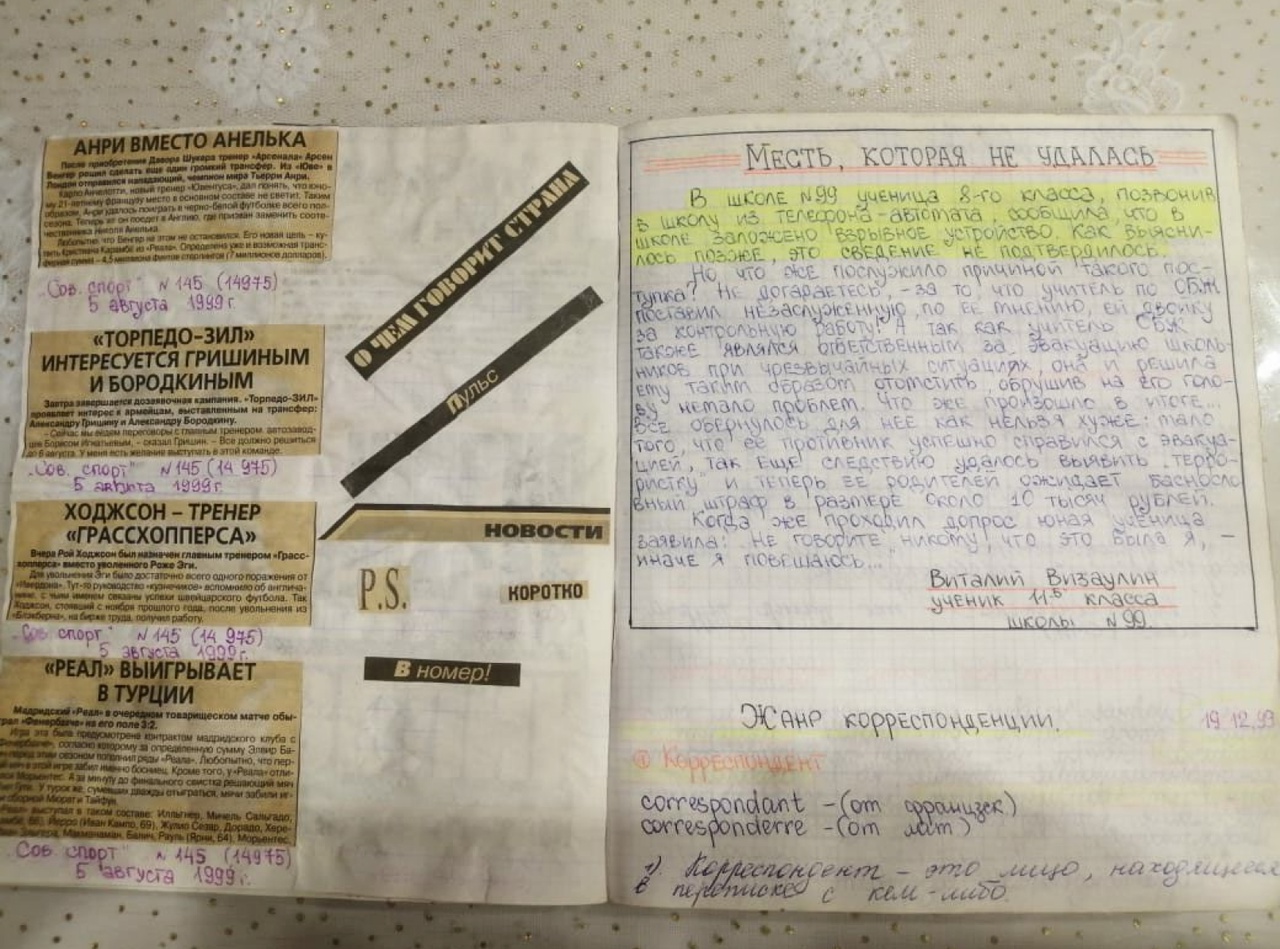 АНРИ ВМЕСТО АНЕЛЬКА
После приобретения Давора Шукера тренер «Арсенала» Арсен
Венгер решил сделать еще один громкий трансфер. Из «Юве» в
Лондон отправился нападающий, чемпион мира Тьерри Анри.
Карло Анчелотти, новый тренер «Ювентуса», дал понять, что юно-
му 21-летнему французу место в основном составе не светит. Таким
образом, Анри удалось поиграть в черно-белой футболке всего пол-
сезона. Теперь же он поедет в Англию, где призван заменить сооте-
чественника Николя Анелька.
Любопытно, что Венгер на этом не остановился. Его новая цель – ку-
пить Кристиана Карамбё из «Реала». Определена уже и возможная транс-
ферная сумма – 4,5 миллиона фунтов стерлингов (7 миллионов долларов).
„Сов. спорт" N 145 (14975)
5 августа 1999 г.
«ТОРПЕДО-ЗИЛ»
ИНТЕРЕСУЕТСЯ ГРИШИНЫМ
И БОРОДКИНЫМ
Завтра завершается дозаявочная кампания. «Торпедо-ЗИЛ»
проявляет интерес к армейцам, выставленным на трансфер:
Александру Гришину и Александру Бородкину.
– Сейчас мы ведем переговоры с главным тренером автозавод-
цев Борисом Игнатьевым, – сказал Гришин. – Все должно решиться
до 6 августа. У меня есть желание выступать в этой команде.
„Сов. спорт" N 145 (14 975)
5 августа 1999г.
ХОДЖСОН – ТРЕНЕР
«ГРАССХОППЕРСА»
Вчера Рой Ходжсон был назначен главным тренером «Грасс-
хопперса» вместо уволенного Роже Эги.
Для увольнения Эги было достаточно всего одного поражения от
Тут-то руководство «кузнечиков» вспомнило об англича-
нине, с чьим именем связаны успехи швейцарского футбола. Так
Ходжсон, стоявший с ноября прошлого года, после увольнения из
«Блэкберна», на бирже труда, получил работу.
„Сов спорт" N 145 (14 975)
5 августа 1999г.
«РЕАЛ» ВЫИГРЫВАЕТ
В ТУРЦИИ
Мадридский «Реал» в очередном товарищеском матче обы-
грал «Фенербахче» на его поле 3:2.
Игра эта была предусмотрена контрактом мадридского клуба с
«Фенербахче», согласно которому за определенную сумму Элвир Ба-
перед этим сезоном пополнил ряды «Реала». Любопытно, что пер-
в этой игре забил именно босниец. Кроме того, у «Реала» отли-
Морьентес. А за минуту до финального свистка решающий мяч
Гути. У турок же, сумевших дважды отыграться, мячи забили иг-
сборной Мюрат и Тайфун.
«Реал» выступал в таком составе: Илльгнер, Мичель Сальгадо,
66), Йерро (Иван Кампо, 69), Жулио Сезар, Дорадо, Хере-
Макманаман, Балич, Рауль (Ярни, 64), Морьентес,
„Сов. спорт" N 145 (14975)
5 августа 1999г.
О ЧЕМ ГОВОРИТ СТРАНА
Пульс
НОВОСТИ
P.S.
КОРОТКО
В номер!
МЕСТЬ, КОТОРАЯ НЕ УДАЛАСЬ
В школе N99 ученица 8-го класса, позвонив
в школу из телефона-автомата, сообщила, что в
школе заложено взрывное устройство. Как выясни-
лось позже, это сведение не подтвердилось.
Но что же послужило причиной такого пос-
тупка? Не догараетесь, – за то что учитель по ОБЖ
поставил незаслуженную, по её мнению, ей двойку
за контрольную работу! А так как учитель ОБЖ
также являлся ответственным за эвакуацию школь-
ников при чрезвычайных ситуациях, она и решила
ему таким образом отомстить, обрушив на его голо-
ву немало проблем. Что же произошло в итоге...
Все обернулось для нее как нельзя хуже: мало
того, что ее противник успешно справился с эвакуа-
цией, так еще следствию удалось выявить „терро-
ристку" и теперь ее родителей ожидает баснесло
вный штраф в размере около 10 тысяч рублей.
Когда же проходил допрос юная ученица
заявила: „Не говорите никому, что это была я, –
иначе я повешаюсь...
Виталий Визаулин
ученик 11"Б" класса
школы N99.
ЖАНР КОРРЕСПОНДЕНЦИИ.
19.12.99
① Корреспондент
correspondant – (от французск)
corresponderre – (от лат)
1) Корреспондент – это лицо, находящееся
в переписке с кем-либо.